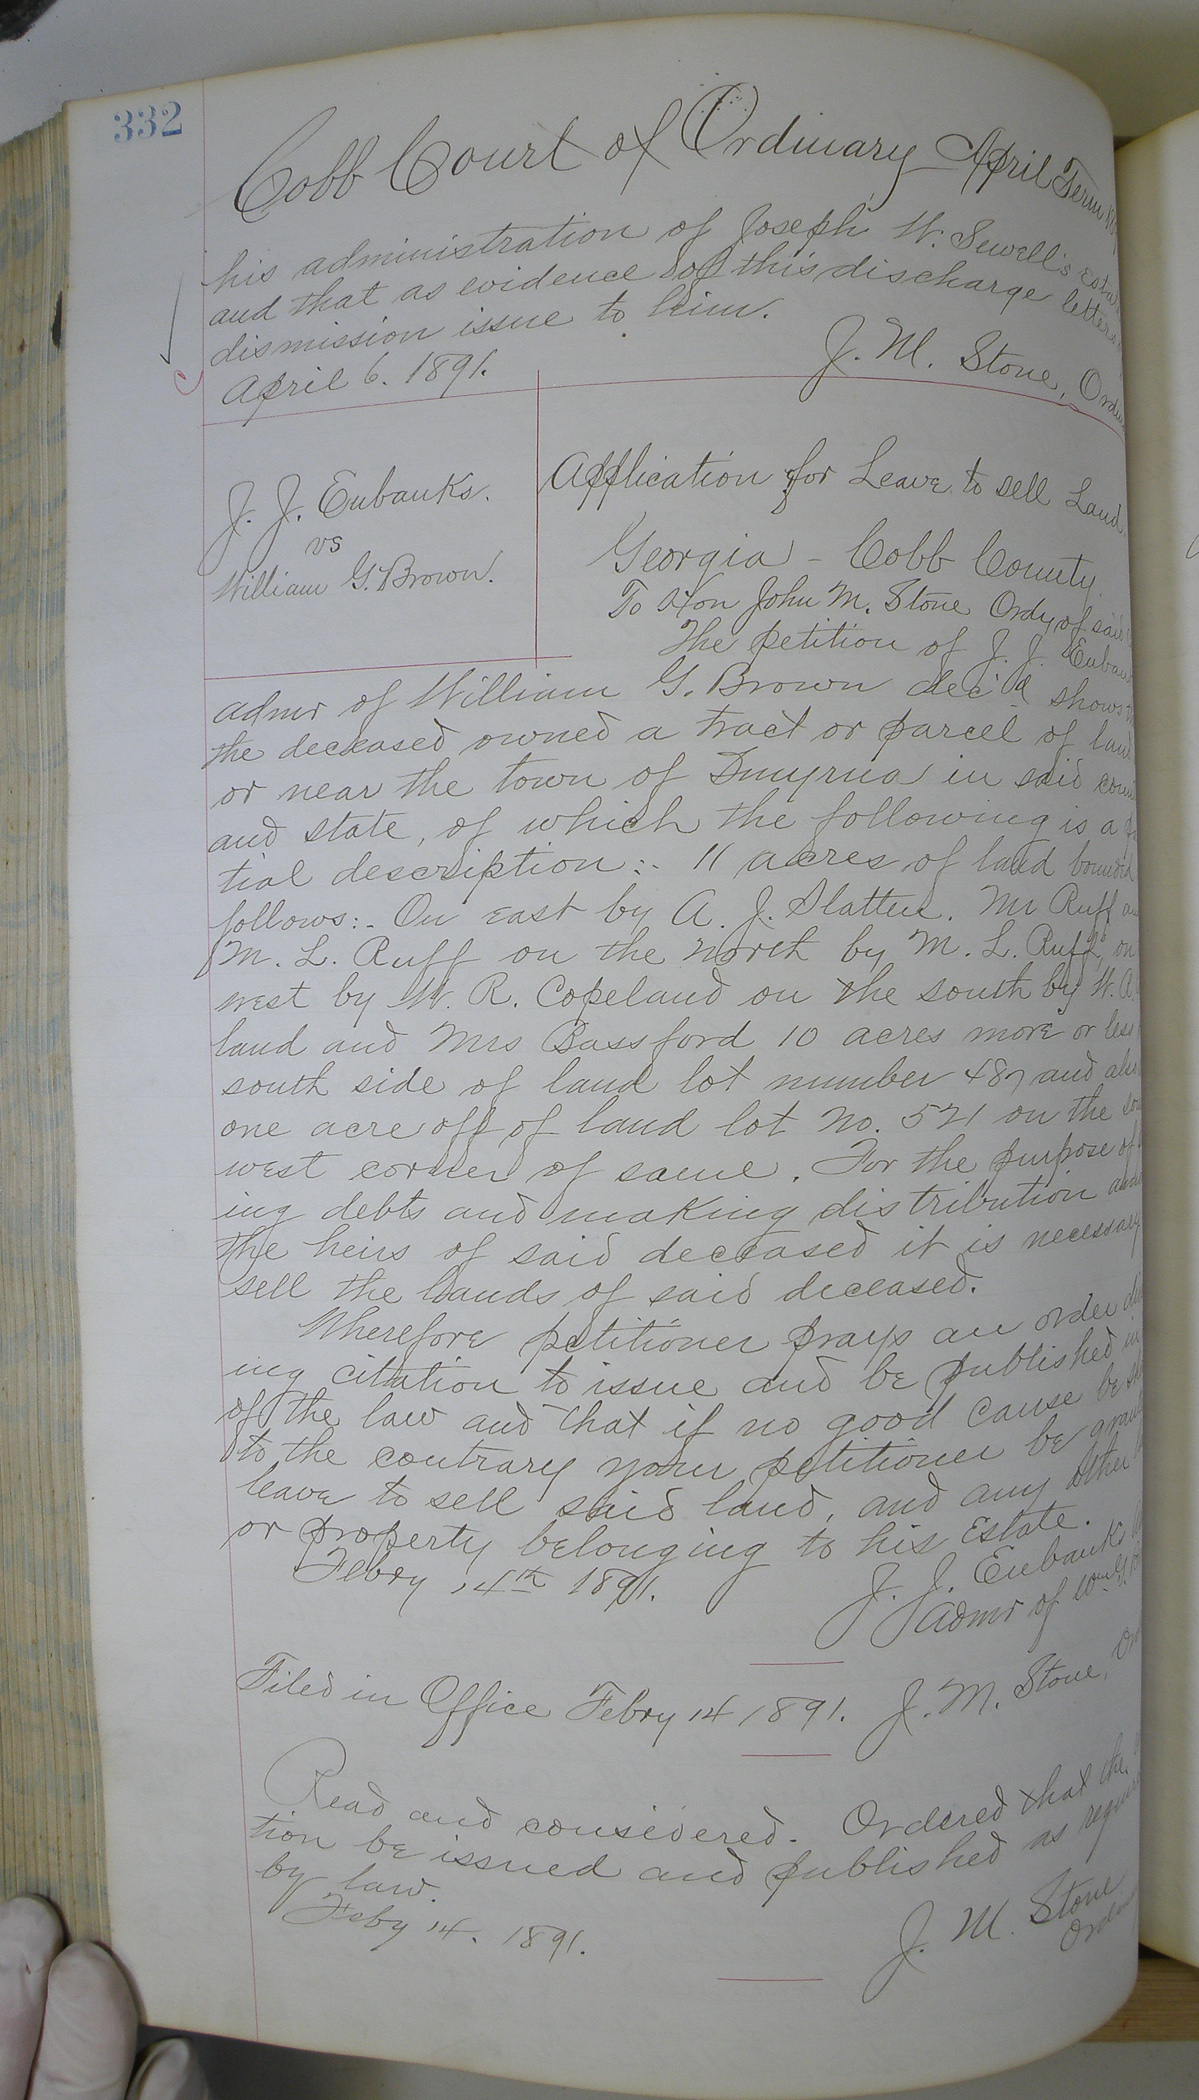 332
Cobb Court of Ordinary April Term
his administration of Joseph W. Sewell's
and that as evidence of this discharge letters
dismission issue to him.
April 6. 1891.
J. M. Stone,
J. J. Eubanks.
vs
William G. Brown.
Application for Leave to sell Land.
Georgia - Cobb County.
To Hon John M. Stone Ordy of said
The petition of J. J.
admr of William G. Brown dec'd shows
the deceased owned a tract or parcel of land
or near the town of Smyrna in said
and state, of which the following is a
tial description:- 11 acres of land bounded
follows:- On east by A. J. Slatten. Mr Ruff
M. L. Ruff on the north by M. L. Ruff, on
west by W. R. Copeland on the south by W.
land and Mrs Bassford 10 acres more or less
south side of land lot number 487 and also
one acre off of land lot No. 521 on the
west corner of same. For the purpose of
ing debts and making distribution
the heirs of said deceased it is necessary
sell the lands of said deceased.
Wherefore petitioner prays an order
ing citation to issue and be published in
of the law and that if no good cause be
to the contrary your petitioner be
leave to sell said land, and any other
or property belonging to his Estate.
Febry 14th 1891.
J. J. Eubanks
admr of Wm G.
Filed in Office Febry 14 1891. J. M. Stone,
Read and considered. Ordered that the
tion be issued and published as
by law.
Feby 14. 1891.
J. M. Stone